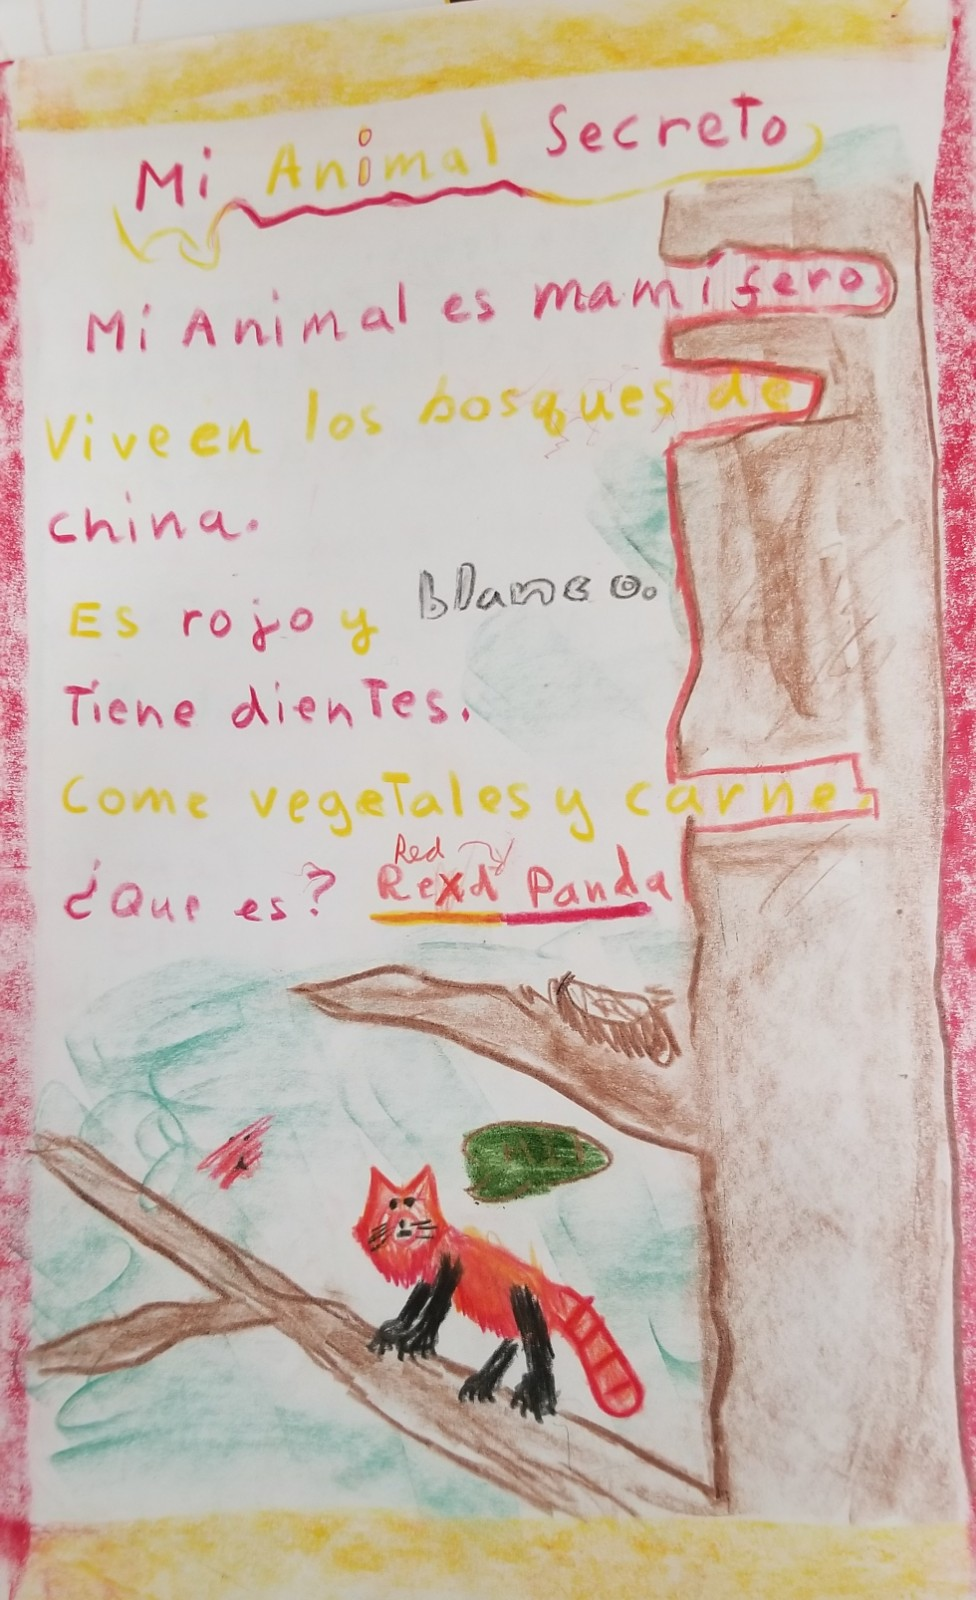 Mi Animal Secreto
Mi Animal es mamífero.
Vive en los bosques de
china.
Es rojo y blanco.
Tiene dientes.
Come vegetales y carne.
Red
¿Que es? Rexd Panda